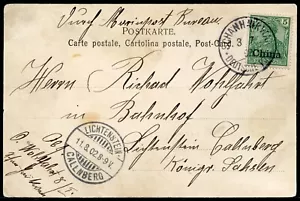 Durch Marinepost Bureau
POSTKARTE.
Carte postale, Cartolina postale, Post-Card.
5
China
3
Herrn Richard Wohlfahrt
in Bahnhof
Lichtenstein Callnberg
Königr. Sachsen
LICHTENSTEIN
11.8.02.8-9V.
CALLNBERG
Abs.
R. Wohlfahrt